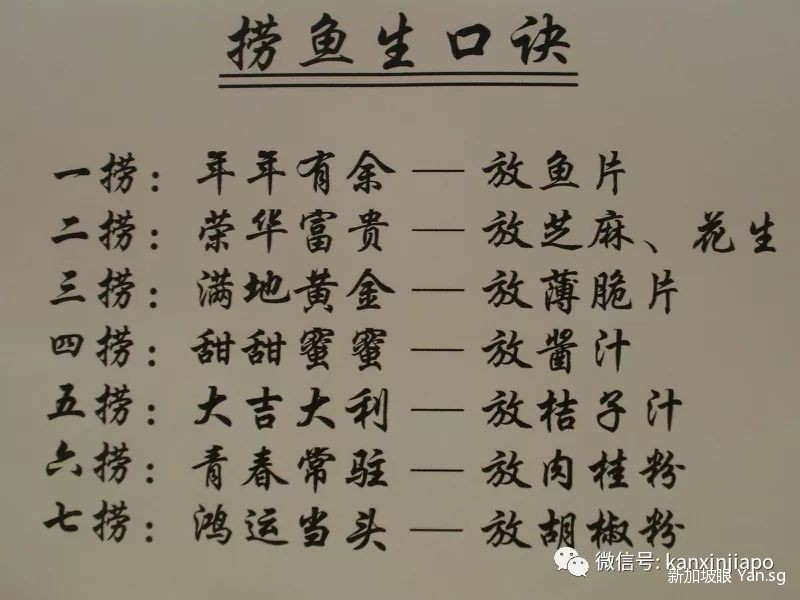 捞鱼生口诀
一捞：年年有余 — 放鱼片
二捞：荣华富贵 — 放芝麻、花生
三捞：满地黄金 — 放薄脆片
四捞：甜甜蜜蜜 — 放酱汁
五捞：大吉大利 — 放桔子汁
六捞：青春常驻 — 放肉桂粉
七捞：鸿运当头 — 放胡椒粉
微信号: kanxinjiapo
新加坡眼 Yan.sg